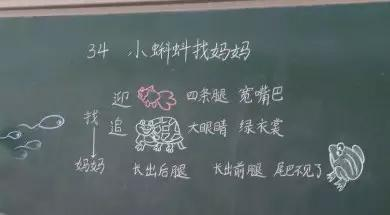 34 小蝌蚪找妈妈
迎 四条腿 宽嘴巴
找
追 大眼睛 绿衣裳
妈妈 长出后腿 长出前腿 尾巴不见了